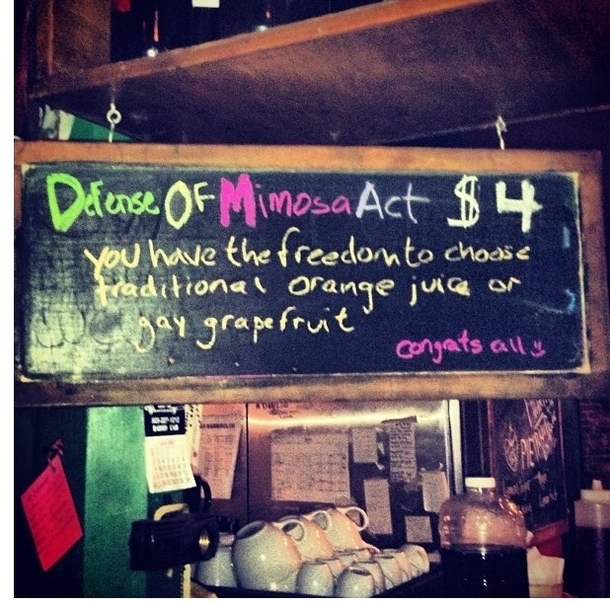 Defense OF Mimosa Act $4
you have the freedom to choose
traditional orange juice or
gay grapefruit
congrats all